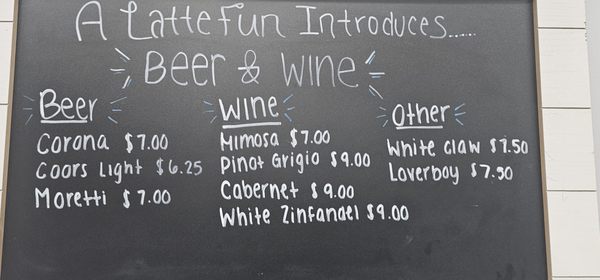 A Latte Fun Introduces......
Beer & Wine
Beer
Corona $7.00
Coors Light $6.25
Moretti $7.00
Wine
Mimosa $7.00
Pinot Grigio $9.00
Cabernet $9.00
White Zinfandel $9.00
Other
White Claw $7.50
Loverboy $7.50